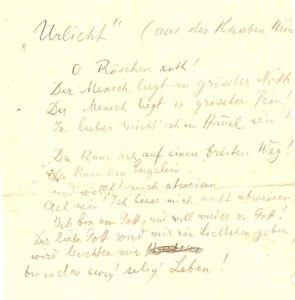 „Urlicht“ (aus des Knaben Wun
O Röschen roth!
Der Mensch liegt in grösster Noth
Der Mensch liegt in grösster Pein!
Ja lieber möcht' ich im Himel sein!
Da kam ich auf einen breiten Weg!
Da kam ein Engelein
und wollt' mich abweisen
Ach nein! Ich liess mich nicht abweisen
Ich bin von Gott, und will wieder zu Gott!
Der liebe Gott wird mir ein Lichtchen geben
wird leuchten mir
bis in das ewig selig Leben!